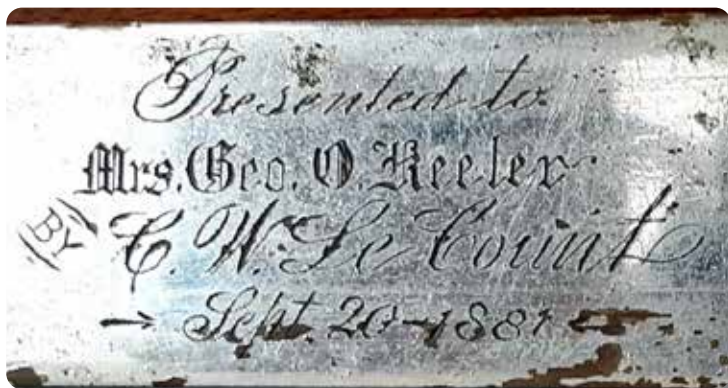 Presented to
Mrs. Geo. O. Keeler
BY C. W. Le Count
Sept. 20-1887